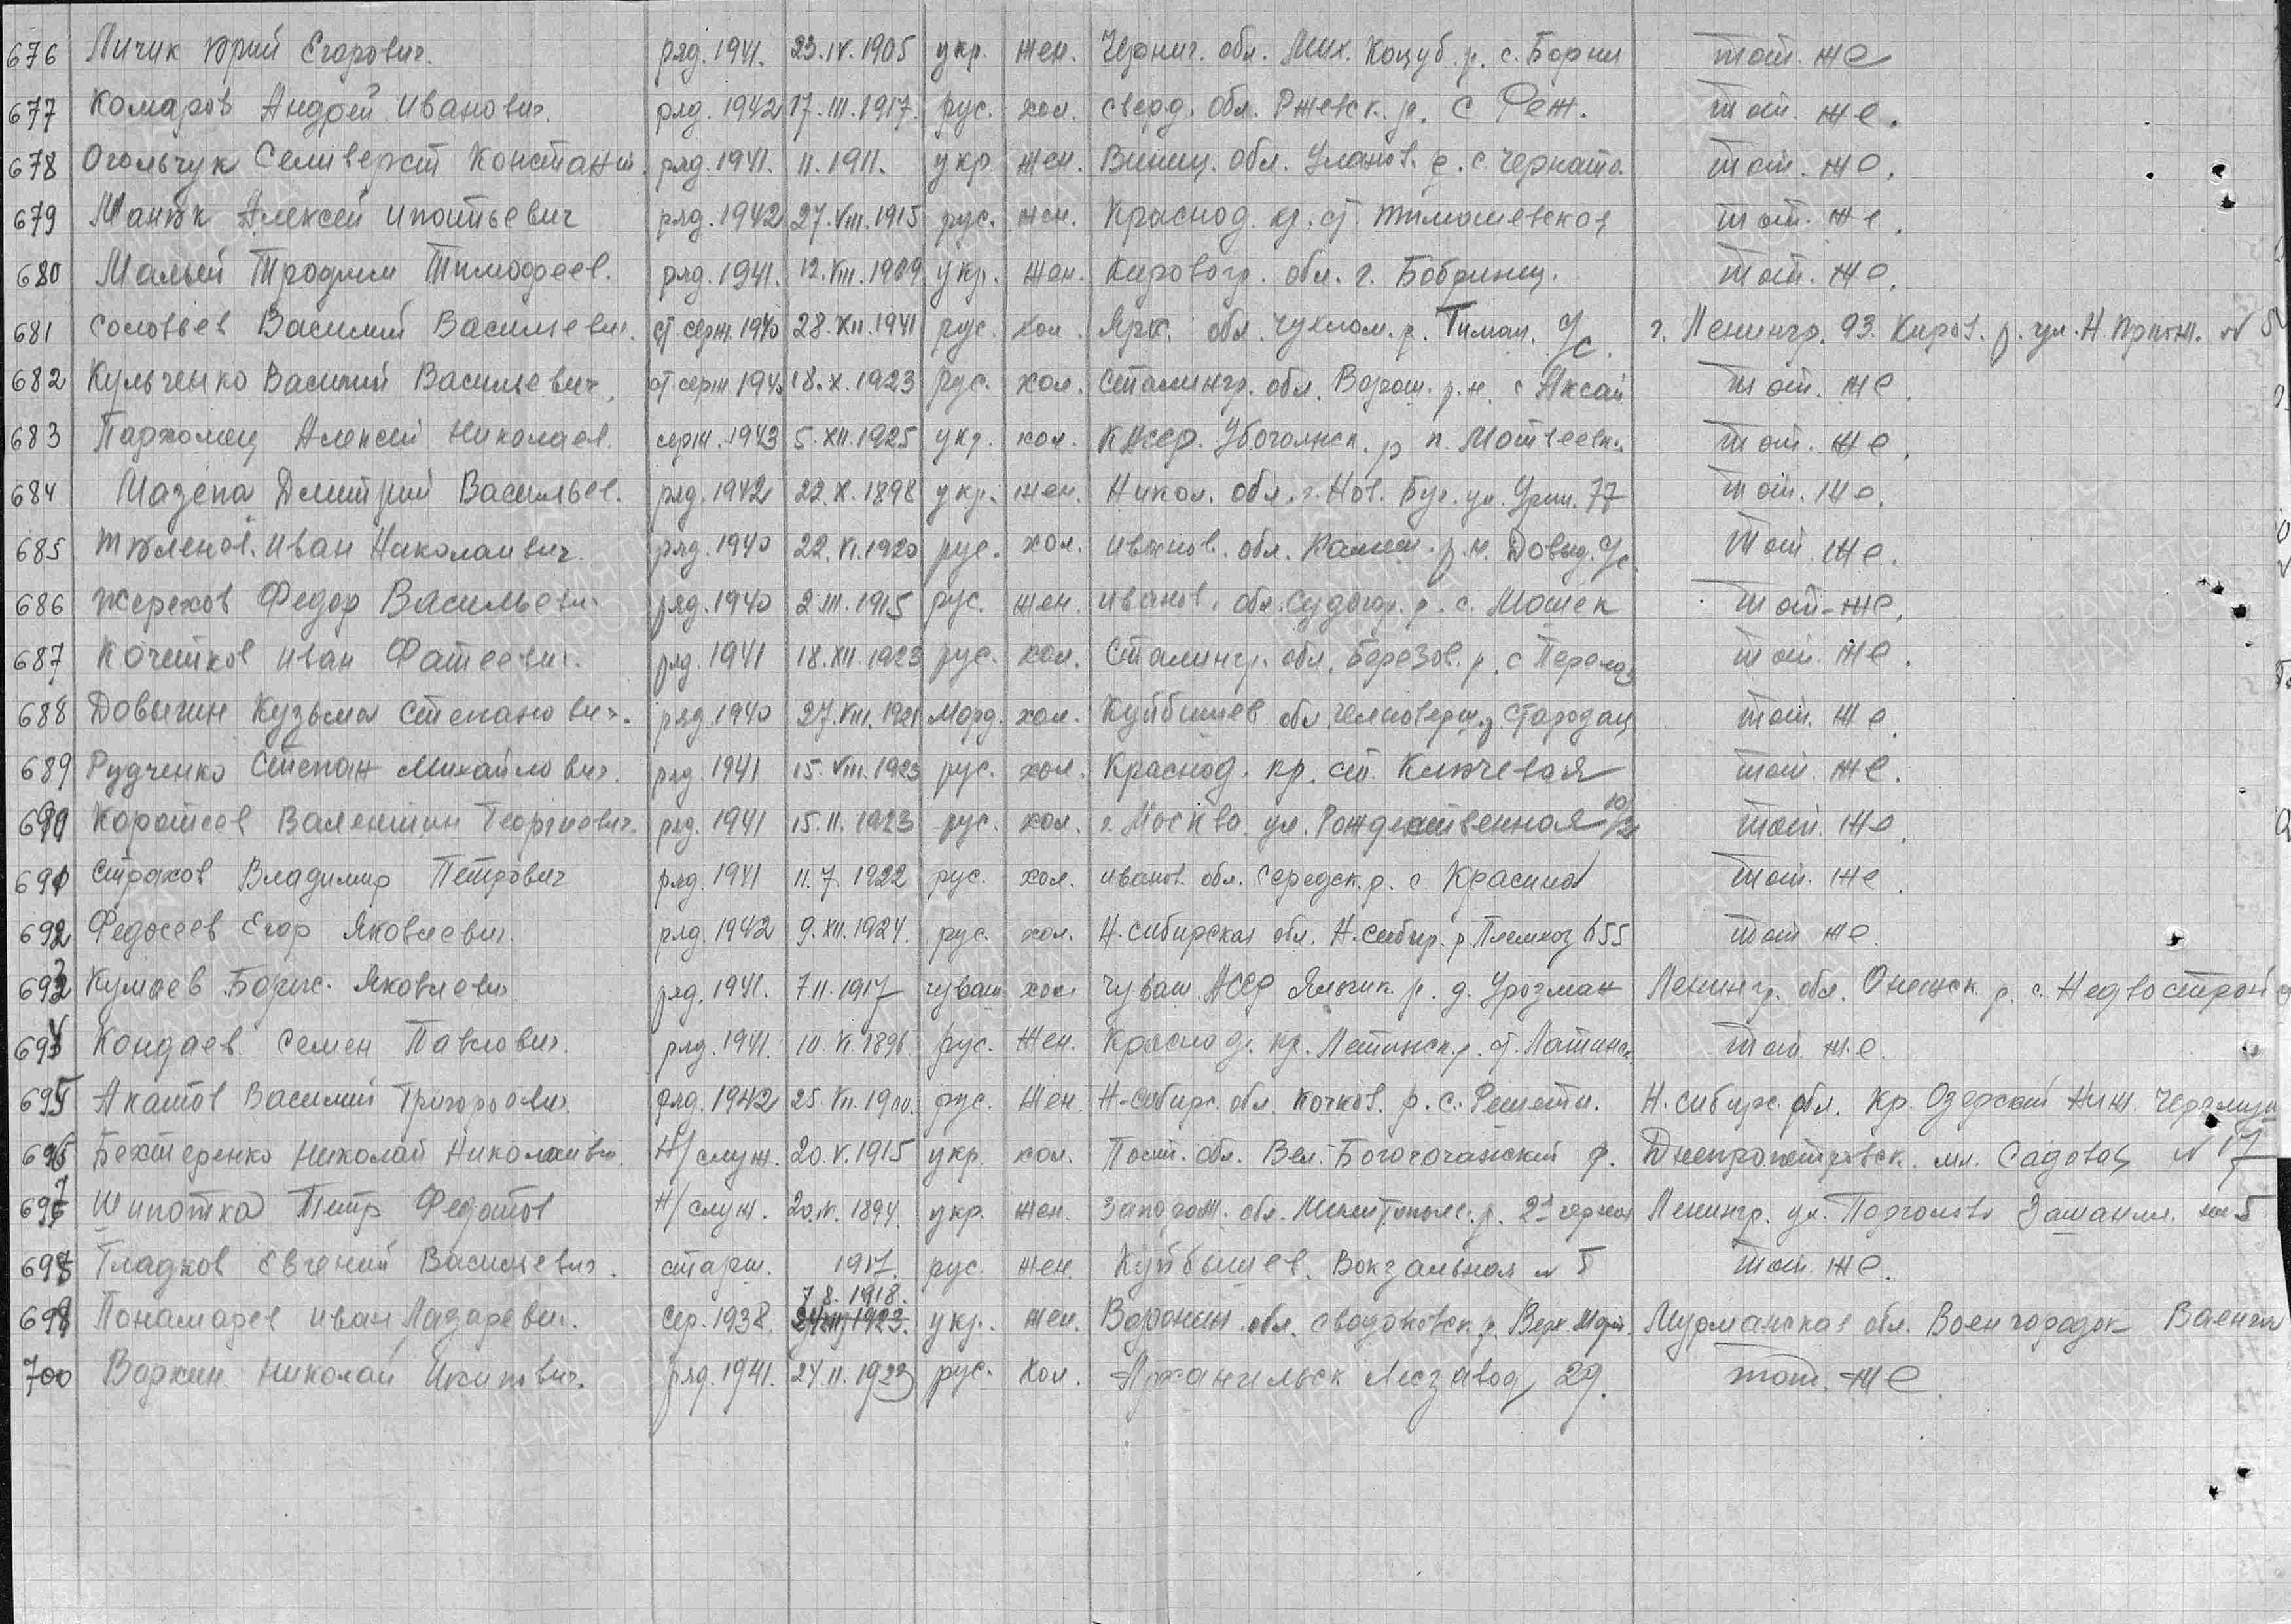 676 Личик Юрий Егорович. ряд. 1941. 23.IV.1905 укр. жен. Черниг. обл. Мих. Коцуб. р. с. Борки тот. же
677 Комаров Андрей Иванович. ряд. 1942 17.III.1917. рус. хол. сверд. обл. Ржевск. р. с Реж. тот. же.
678 Огольчук Селиверст Констант. ряд. 1941. 11.1911. укр жен. Винниц. обл. Уланов. р. с. Чернято. тот. же.
679 Манюк Алексей Ипотьевич ряд. 1942 27.VIII.1915 рус. жен. Краснод. кр. ст. Тимашевская тот. же.
680 Малый Трофим Тимофеев. ряд. 1941. 12.VIII.1909 укр. жен. Кировогр. обл. г. Бобринец. тот. же.
681 Соловьев Василий Васильевич. ст серж. 1940 28.XII.1941 рус. хол. Ярк. обл. Чухлом. р. Тиман. с/с. г. Ленингр. 93. Киров. р. ул. Н. № 5
682 Кульченко Василий Васильевич. ст серж 1940 18.X.1923 рус. хол. Сталингр. обл. Ворош. р.н. с Аксай тот. же.
683 Пархомец Алексей Николаев. серж. 1943 5.XII.1925 укр. хол. р п. Мотвеевк. тот. же.
684 Мазепа Дмитрий Васильев. ряд. 1942 22.X.1898 укр. жен. Никол. обл. г. Нов. Буг. ул. Уриц. 77 тот. же.
685 Тюленев. Иван Наколаивич. ряд. 1940 22.VI.1920 рус. хол. Иванов. обл. Камеш. р.н. Довыд. с/с. тот. же.
686 Жерехов Федор Васильевич ряд. 1940 2.III.1915 рус. жен. Иванов. обл. Судогор. р. с. Мошек тот-же.
687 Кочетков Иван Фатеевич. ряд. 1941 18.XII.1923 рус. хол. Сталингр. обл. Березов. р. с Перелаз тот. же.
688 Довыгин Кузьма Степанович. ряд. 1940 27.VIII.1921 морд. хол. Куйбышев обл. Челноверш. р. тот. же.
689 Рудченко Степан Михайлович. ряд. 1941 15.VIII.1923 рус. хол. Краснод. кр. ст. Ключевая тот. же.
690 Коротеев Валентин Георгиевич. ряд. 1941 15.II.1923 рус. хол. г. Москва ул. Рождественная тот. же.
691 Страхов Владимир Петрович ряд. 1941 11.7.1922 рус. хол. Иванов. обл. Середск. р. с. Красино тот. же.
692 Федосеев Егор Яковлевич. ряд. 1942 9.XII.1924. рус. хол. Н.сибирская обл. Н.сибир. р. 655 тот же.
693 Кумаев Борис. Яковлевич ряд. 1941. 7.II.1917 чуваш хол Чуваш. АССР Яльчик. р. д. Урозман Ленингр. обл. Онецк. р. с. Недвострой
694 Кондаев Семен Павлович. ряд. 1941. 10.VI.1896 рус. жен. Краснод. кр. Лотинск. р. ст. Лотинск тот же.
695 Акатов Василий Григорович. ряд. 1942 25.VII.1900. рус. жен. Н-сибирс. обл. Кочков. р. с. Решеты. Н. сибирс. обл. Кр. Озерский
696 Бехтеренко Николай Николаивич. Н/служ. 20.V.1915 укр. хол. Полт. обл. Вел. Богочоганский р. Днепропетровск. ул. Садовая № 17
697 Шипотка Петр Федотов Н/служ. 20.IV.1894. укр. жен. Запорож. обл. Милитополь. р. Ленингр. ул. 5
698 Гладков Евгений Васильевич. старш. 1917. рус. жен. Куйбышев. Вокзальная № 5 тот. же.
699 Понамарев Иван Лазаревич. сер. 1938. 7.8.1918. укр. жен. Воронеж обл. р. Верх. Мурманская обл. Военгородок Ваенга
700 Воркин Николай ряд. 1941. 24.II.1923 рус. хол. Архангильск Лесзавод 29. тот. же